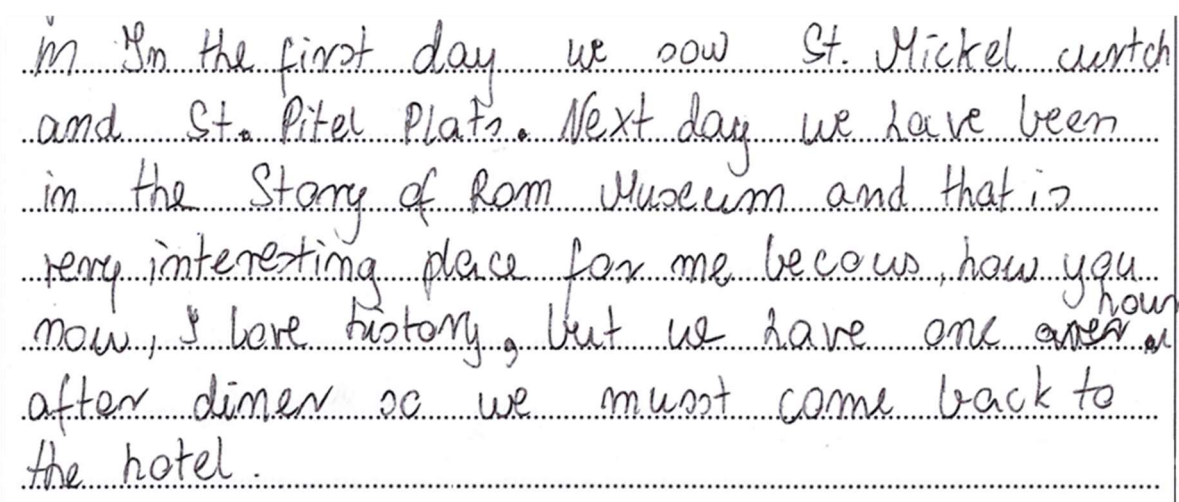 in In the first day we sow St. Mickel curtch
and St. Pitel Plats. Next day we have been
in the Story of Rom Museum and that is
very interesting place for me becous, how you
now, I love history, but we have one hour
after dinner so we musst come back to
the hotel.